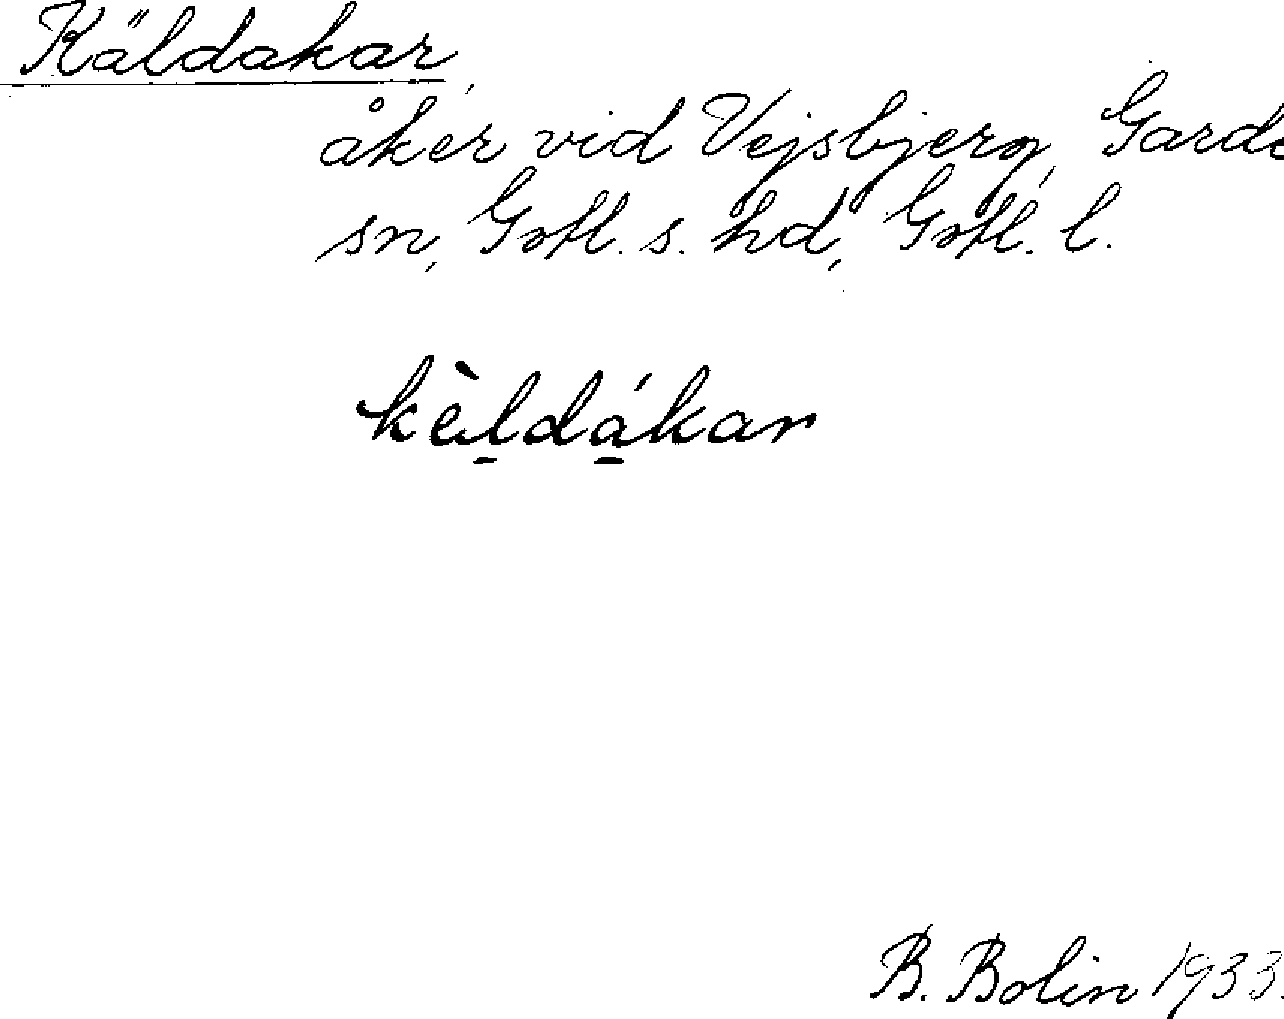 Käldakar,
åker vid Vejsbjerg, Garde
sn, Gotl. s. hd, Gotl. l.
kèl̲dá̲kar
B. Bolin 1933.